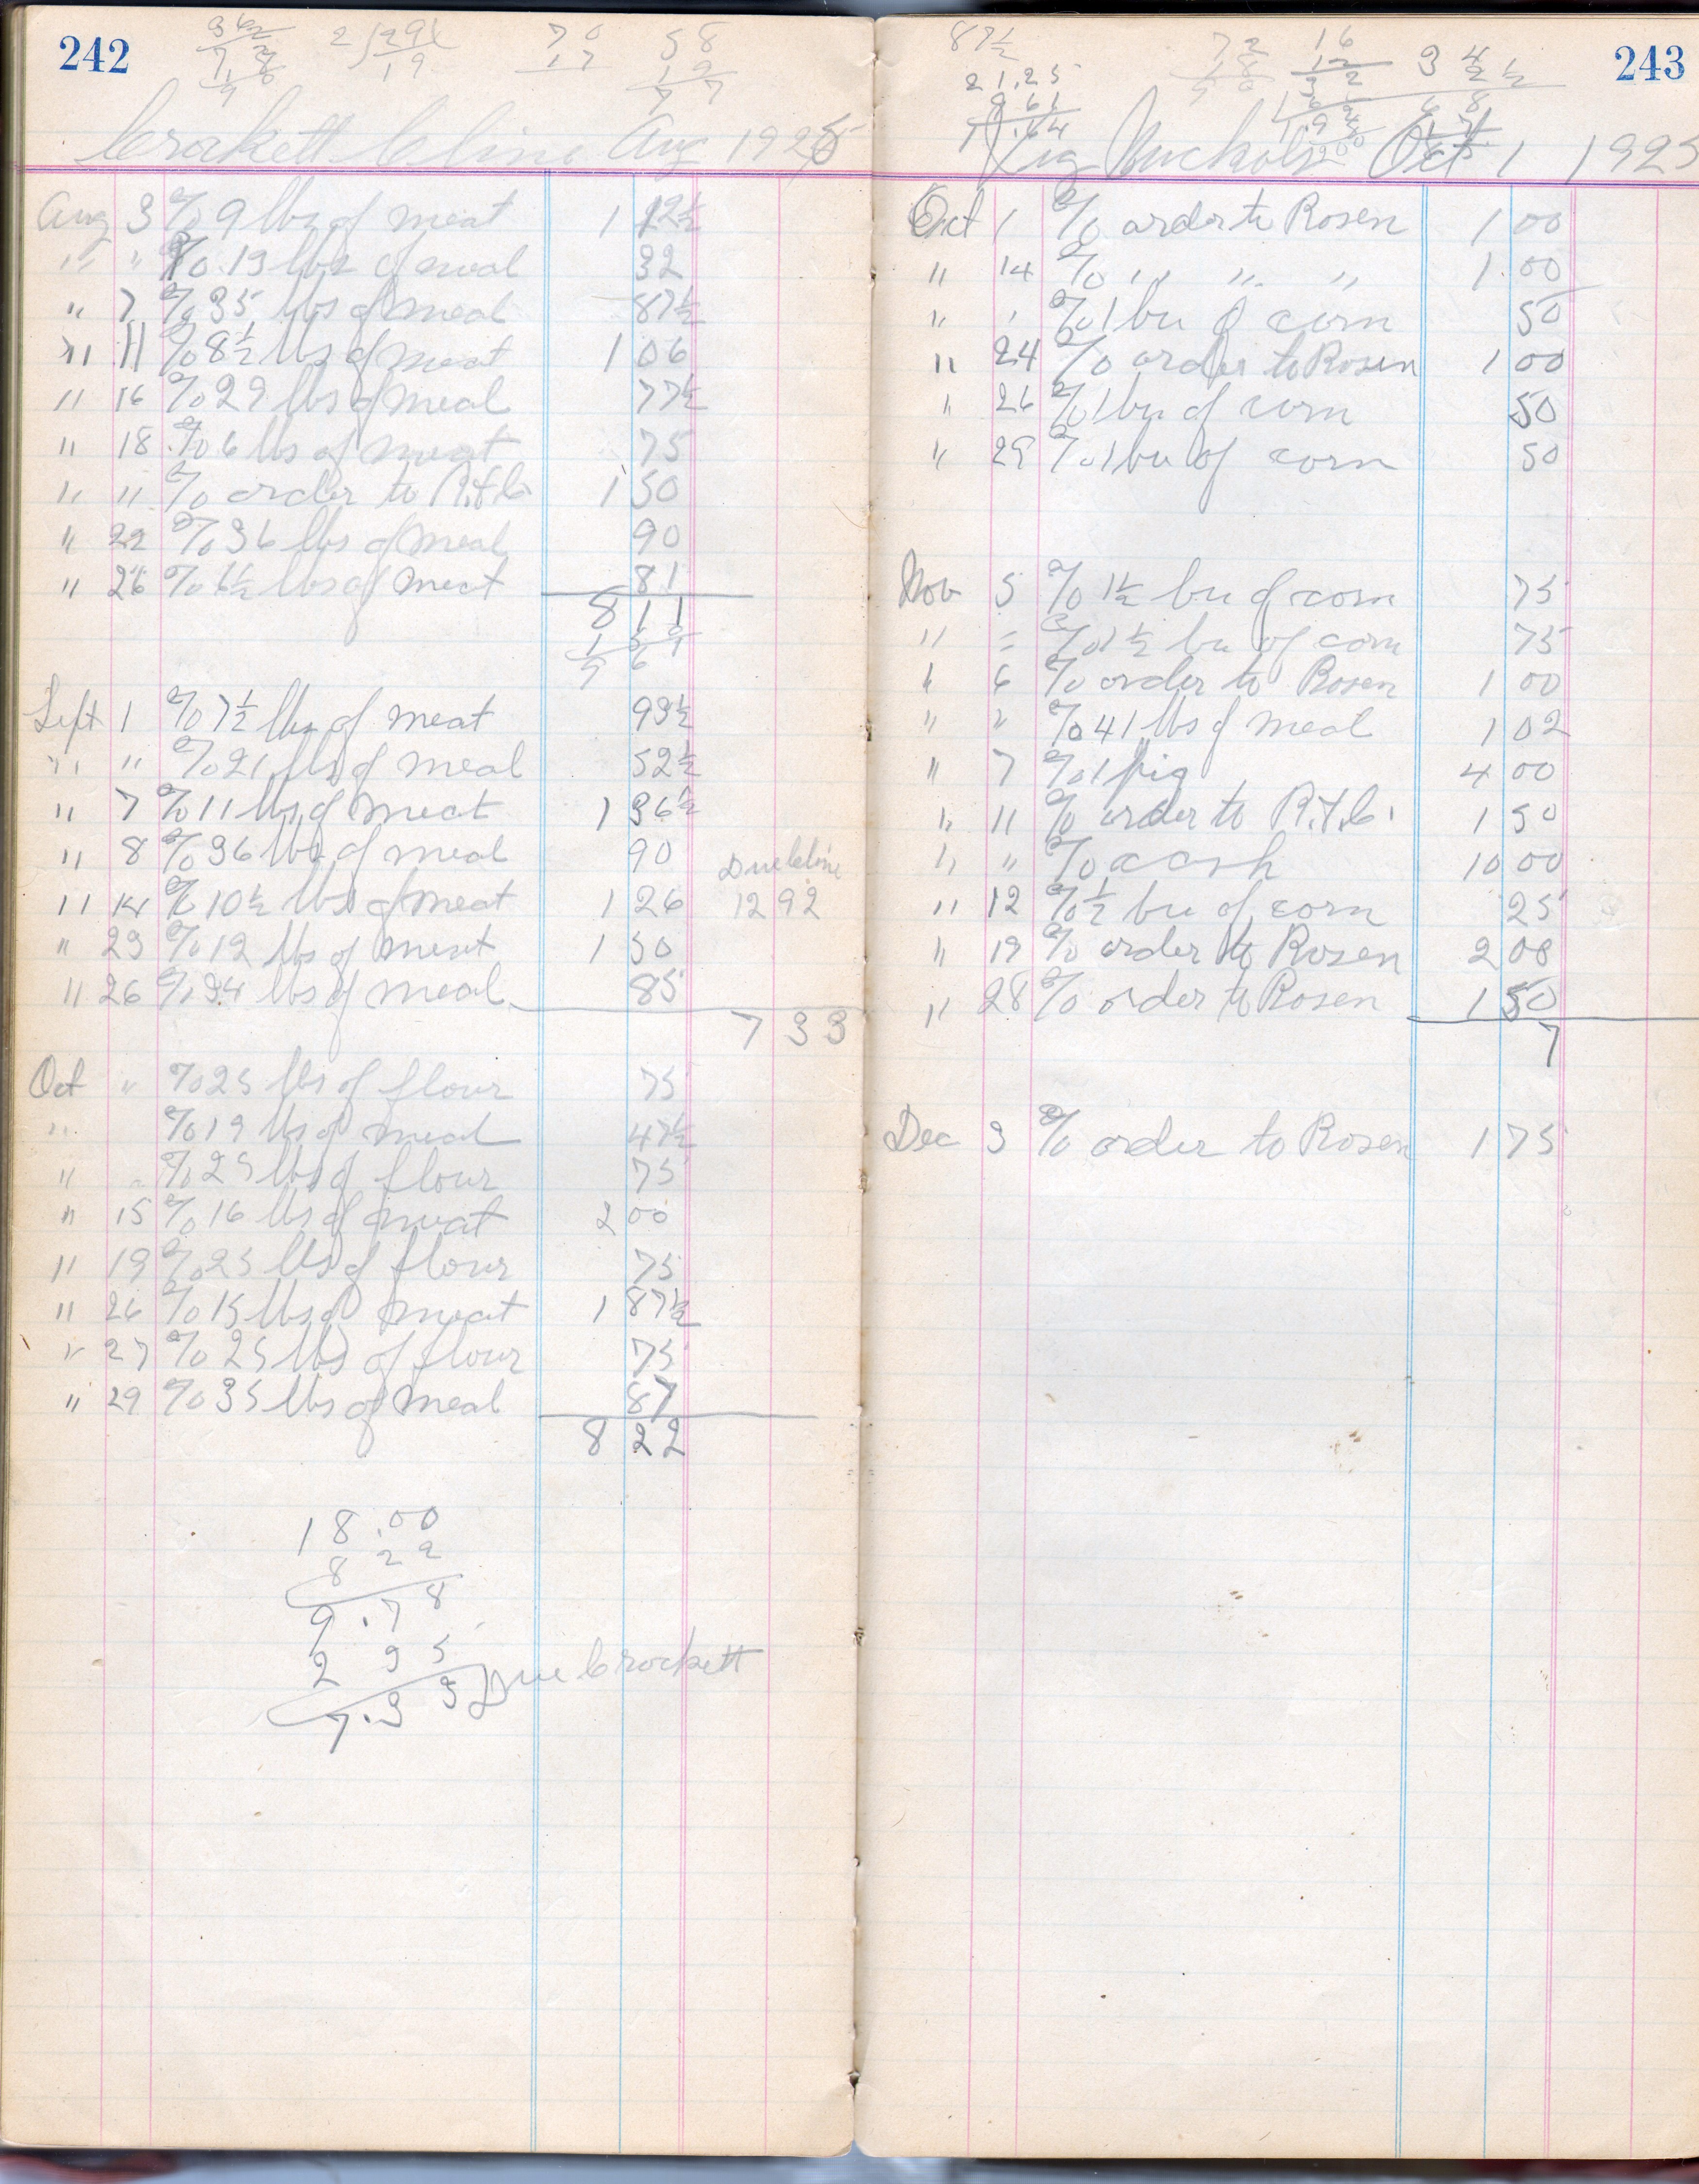 242
Crockett Cline Aug 1925
Aug 3 % 9 lbs of meat 1 12½
" " % 13 lbs of meal 32
" 7 % 35 lbs of meal 87½
" 11 % 8½ lbs of meat 1 06
" 16 % 29 lbs of meal 77½
" 18 % 6 lbs of meat 75
" " % order to R.T.C. 1 50
" 22 % 36 lbs of meal 90
" 26 % 6½ lbs of meat 81
8 11
Sept 1 % 7½ lbs of meat 93½
" " % 21 lbs of meal 52½
" 7 % 11 lbs of meat 1 36½
" 8 % 36 lbs of meal 90
Due Cline
" 14 % 10½ lbs of meat 1 26 12 92
" 23 % 12 lbs of meat 1 50
" 26 % 34 lbs of meal 85
7 33
Oct " % 25 lbs of flour 75
" % 19 lbs of meal 47½
" " % 25 lbs of flour 75
" 15 % 16 lbs of meat 2 00
" 19 % 25 lbs of flour 75
" 26 % 15 lbs of meat 1 87½
" 27 % 25 lbs of flour 75
" 29 % 35 lbs of meal 87
8 22
18.00
8 22
9.78
2 35
7.33 Due Crockett
243
87½
21.25
Nuchols Oct 1 1925
Oct 1 % order to Rosen 1 00
" 14 % " " " 1 00
" " % 1 bu of corn 50
" 24 % order to Rosen 1 00
" 26 % 1 bu of corn 50
" 29 % 1 bu of corn 50
Nov 5 % 1½ bu of corn 75
" = % 1½ bu of corn 75
" 6 % order to Rosen 1 00
" " % 41 lbs of meal 1 02
" 7 % 1 pig 4 00
" 11 % order to R.T.C. 1 50
" " % cash 10 00
" 12 % ½ bu of corn 25
" 19 % order to Rosen 2 00
" 28 % order to Rosen 1 50
7
Dec 3 % order to Rosen 1 75